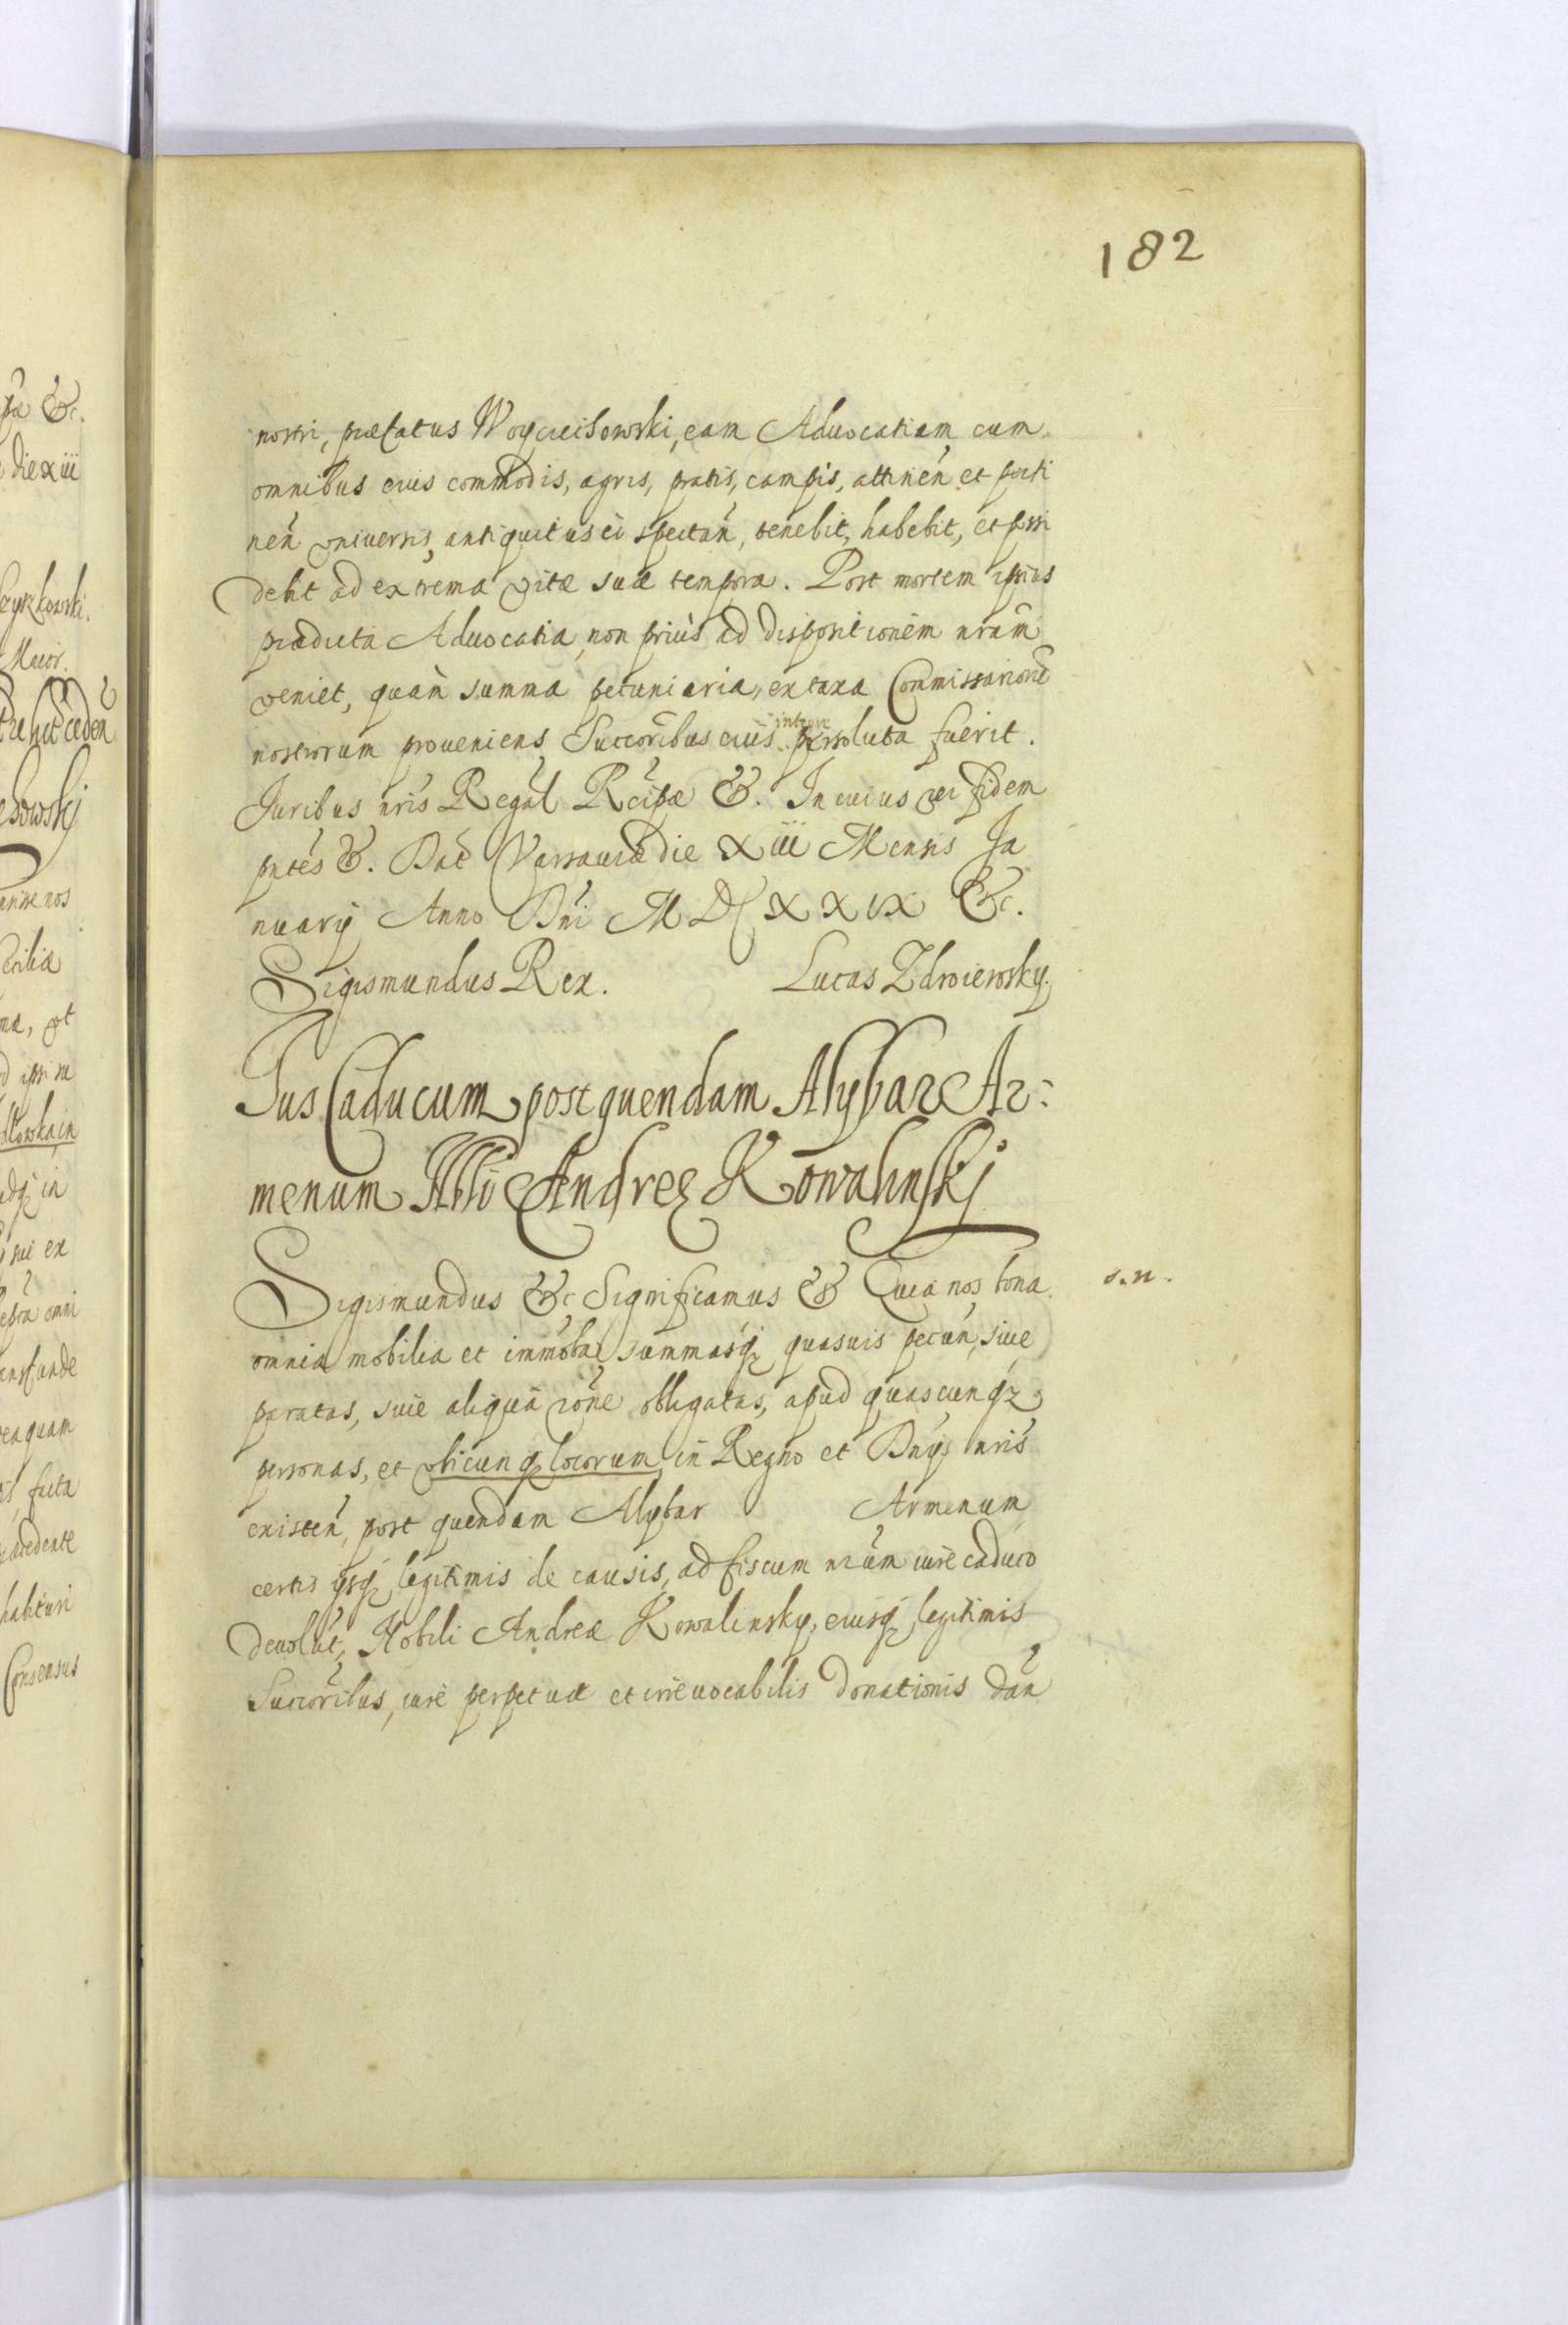 182
nostri, præfatus Woyciechowski, eam Aduocatiam cum
omnibus eius commodis, agris, pratis, campis, attinen̄ et perti
nen̄ vniuersis, antiquitus ei spectan̄, tenebit, habebit, et possi
debit ad extrema vitæ suæ tempora. Post mortem ipsius
prædicta Aduocatia, non priùs ad dispositionem nr̄am
veniet, quàm summa pecuniaria, ex taxa Commissariorū
nostrorum proueniens, Succoribus eius integre persoluta fuerit.
Juribus nr̄is Regal̄ Reipæ &. In cuius rei fidem
pn̄tes &. Dat̄ Varsauiæ die XIII Mensis Ja
nuarij Anno Dn̄i MDCXXIX &c.
Sigismundus Rex. Lucas Zdroiewsky.
Jus Caducum post quendam Alybar Ar:
menum Nbli Andreę Kowalinskj
Sigismundus &c Significamus & Quia nos bona
s.n.
omnia mobilia et immōba summasq; quasuis pecun̄, siue
paratas, siue aliquà rōne obligatas, apud quascunq;
personas, et vbicunq; locorum in Regno et Dn̄ijs nr̄is
existen̄, post quendam Alybar Armenum
certis ijsq; legitimis de causis, ad fiscum nr̄um iure caduco
deuolut̄, Nobili Andreæ Kowalinsky, eiusq; legitimis
Succoribus, iure perpetuæ et irreuocabilis donationis dan̄